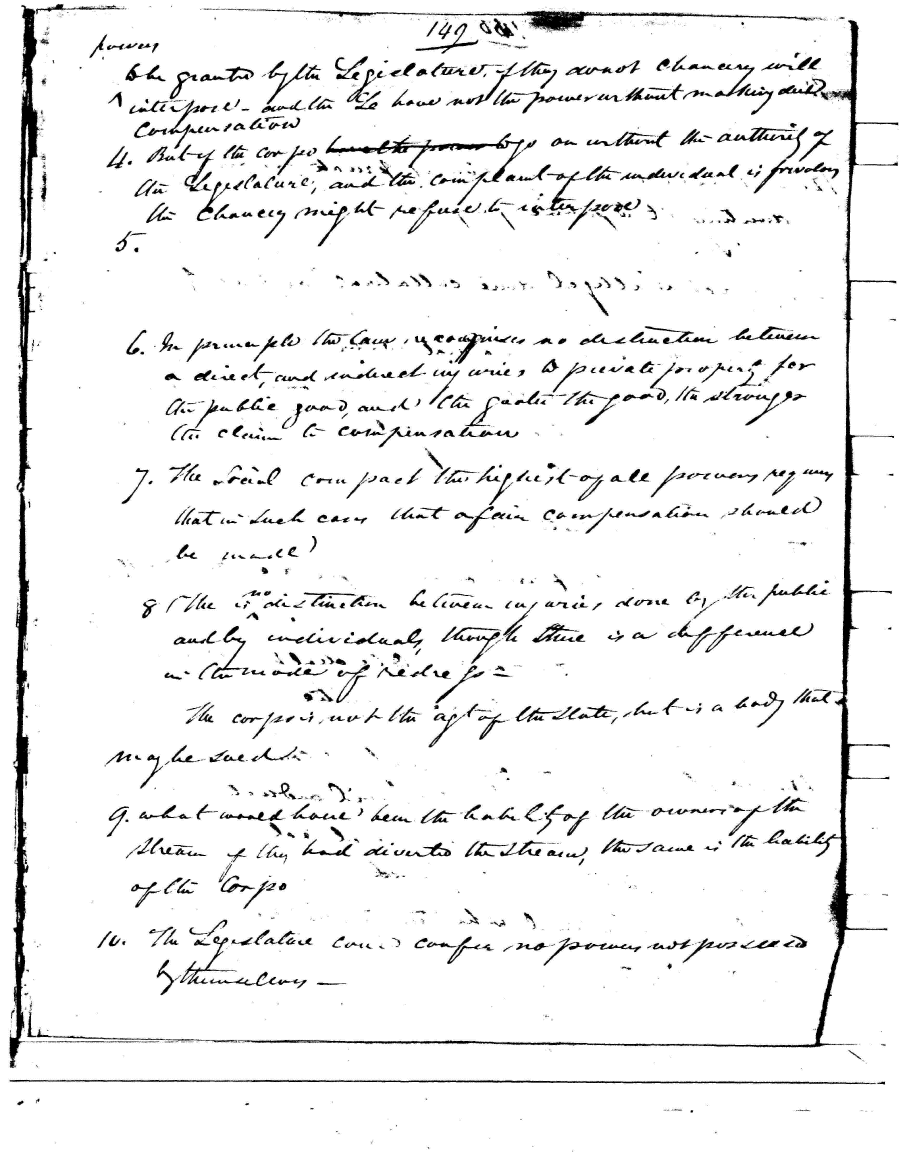 149
powers
to be granted by the Legislature, if they do not Chancery will
^ interpose - and the Le have not the power without making
compensation
4. But if the corpo have the power to go on without the authority of
the Legislature, and the complaint of the individual is frivolous
the Chancery might refuse to interpose
5.
6. In principle the Law recognises no distinction between
a direct, and indirect injuries to private property for
the public good, and the greater the good, the stronger
the claim to compensation
7. The Social compact the highest of all powers requires
that in such cases that a fair compensation should
be made
8 The is no distinction between injuries, done by the public
and by individuals, though there is a difference
in the mode of redress =
The corpo is not the agt of the State, but is a body that
may be sued
9. what would have been the liability of the owners of the
stream if they had diverted the stream, the same is the liability
of the Corpo
10. The Legislature could confer no powers not possessed
by themselves —